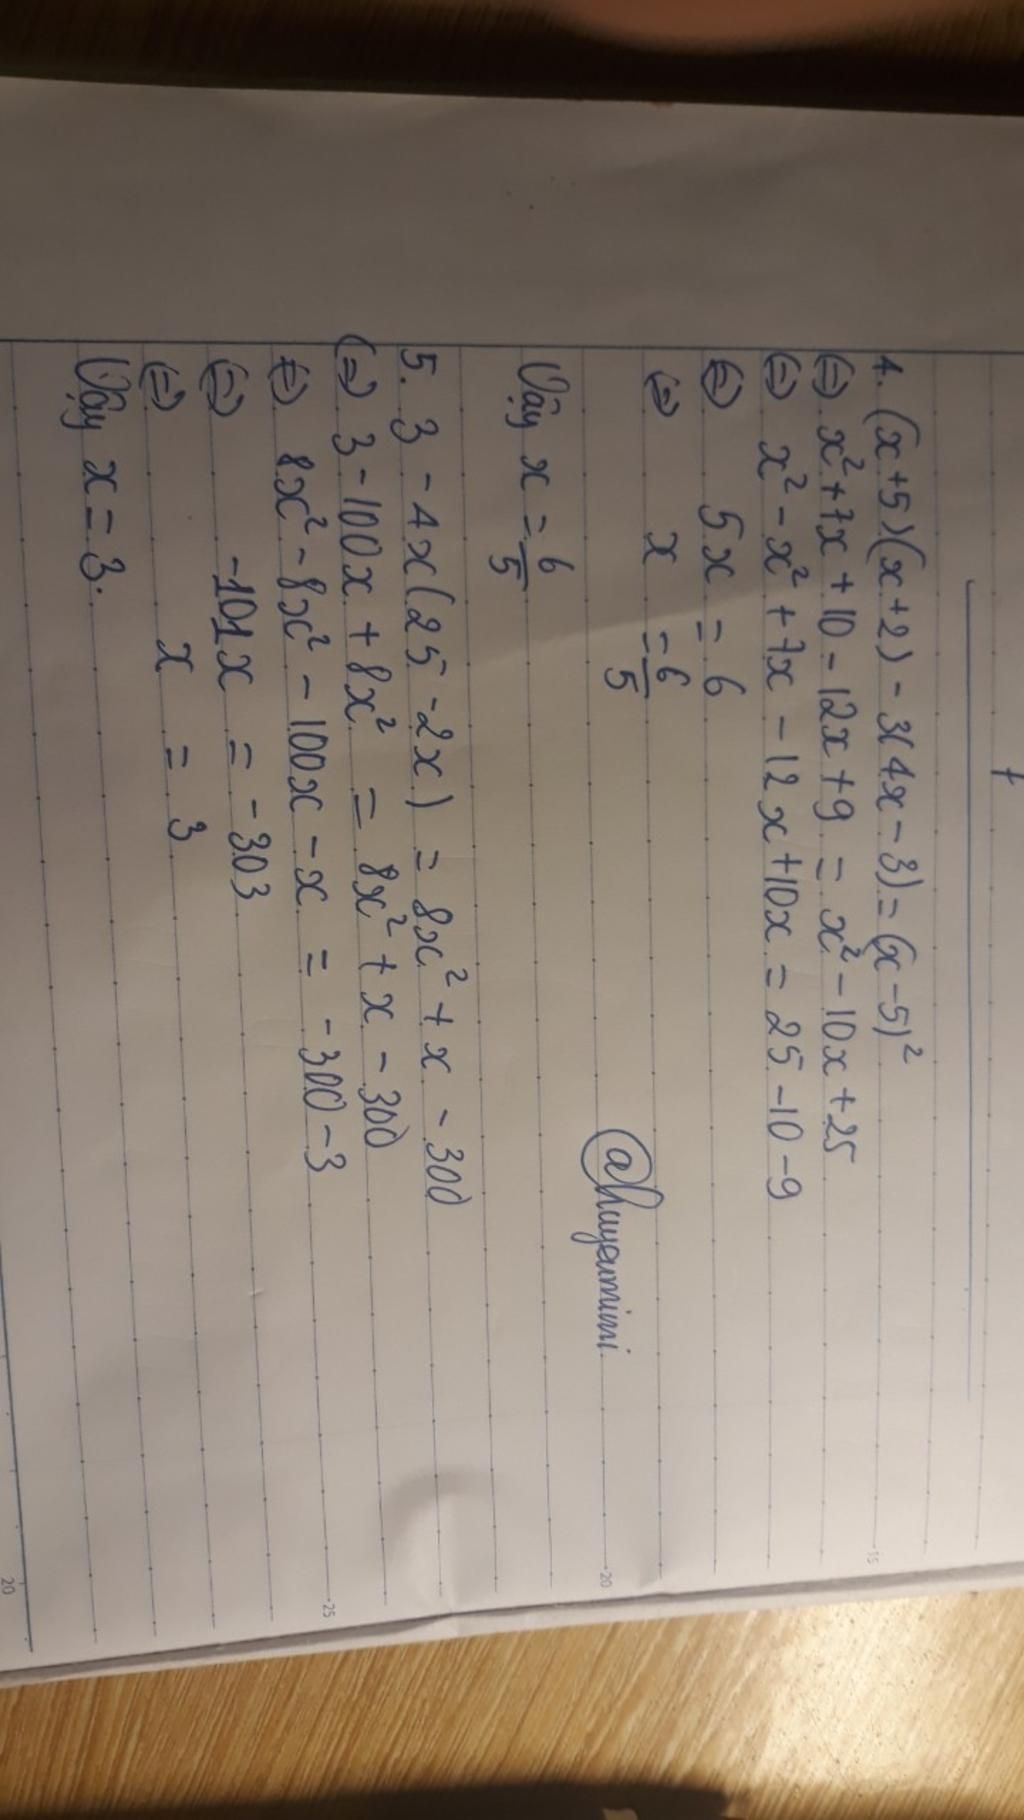 4. (x+5)(x+2) - 3(4x-3) = (x-5)²
(=) x²+7x+10-12x+9 = x²-10x+25
(=) x²-x²+7x-12x+10x = 25-10-9
(=) 5x = 6
(=) x = 6/5
Vậy x = 6/5
@huyenmimi
5. 3-4x(25-2x) = 8x²+x-300
(=) 3-100x+8x² = 8x²+x-300
(=) 8x²-8x²-100x-x = -300-3
(=) -101x = -303
(=) x = 3
Vậy x=3.
15
20
25
20